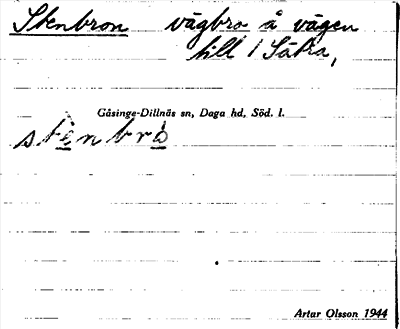 Stenbron vägbro å vägen
till Sätra,
Gåsinge-Dillnäs sn, Daga hd, Söd. l.
stènbrò
Artar Olsson 1944